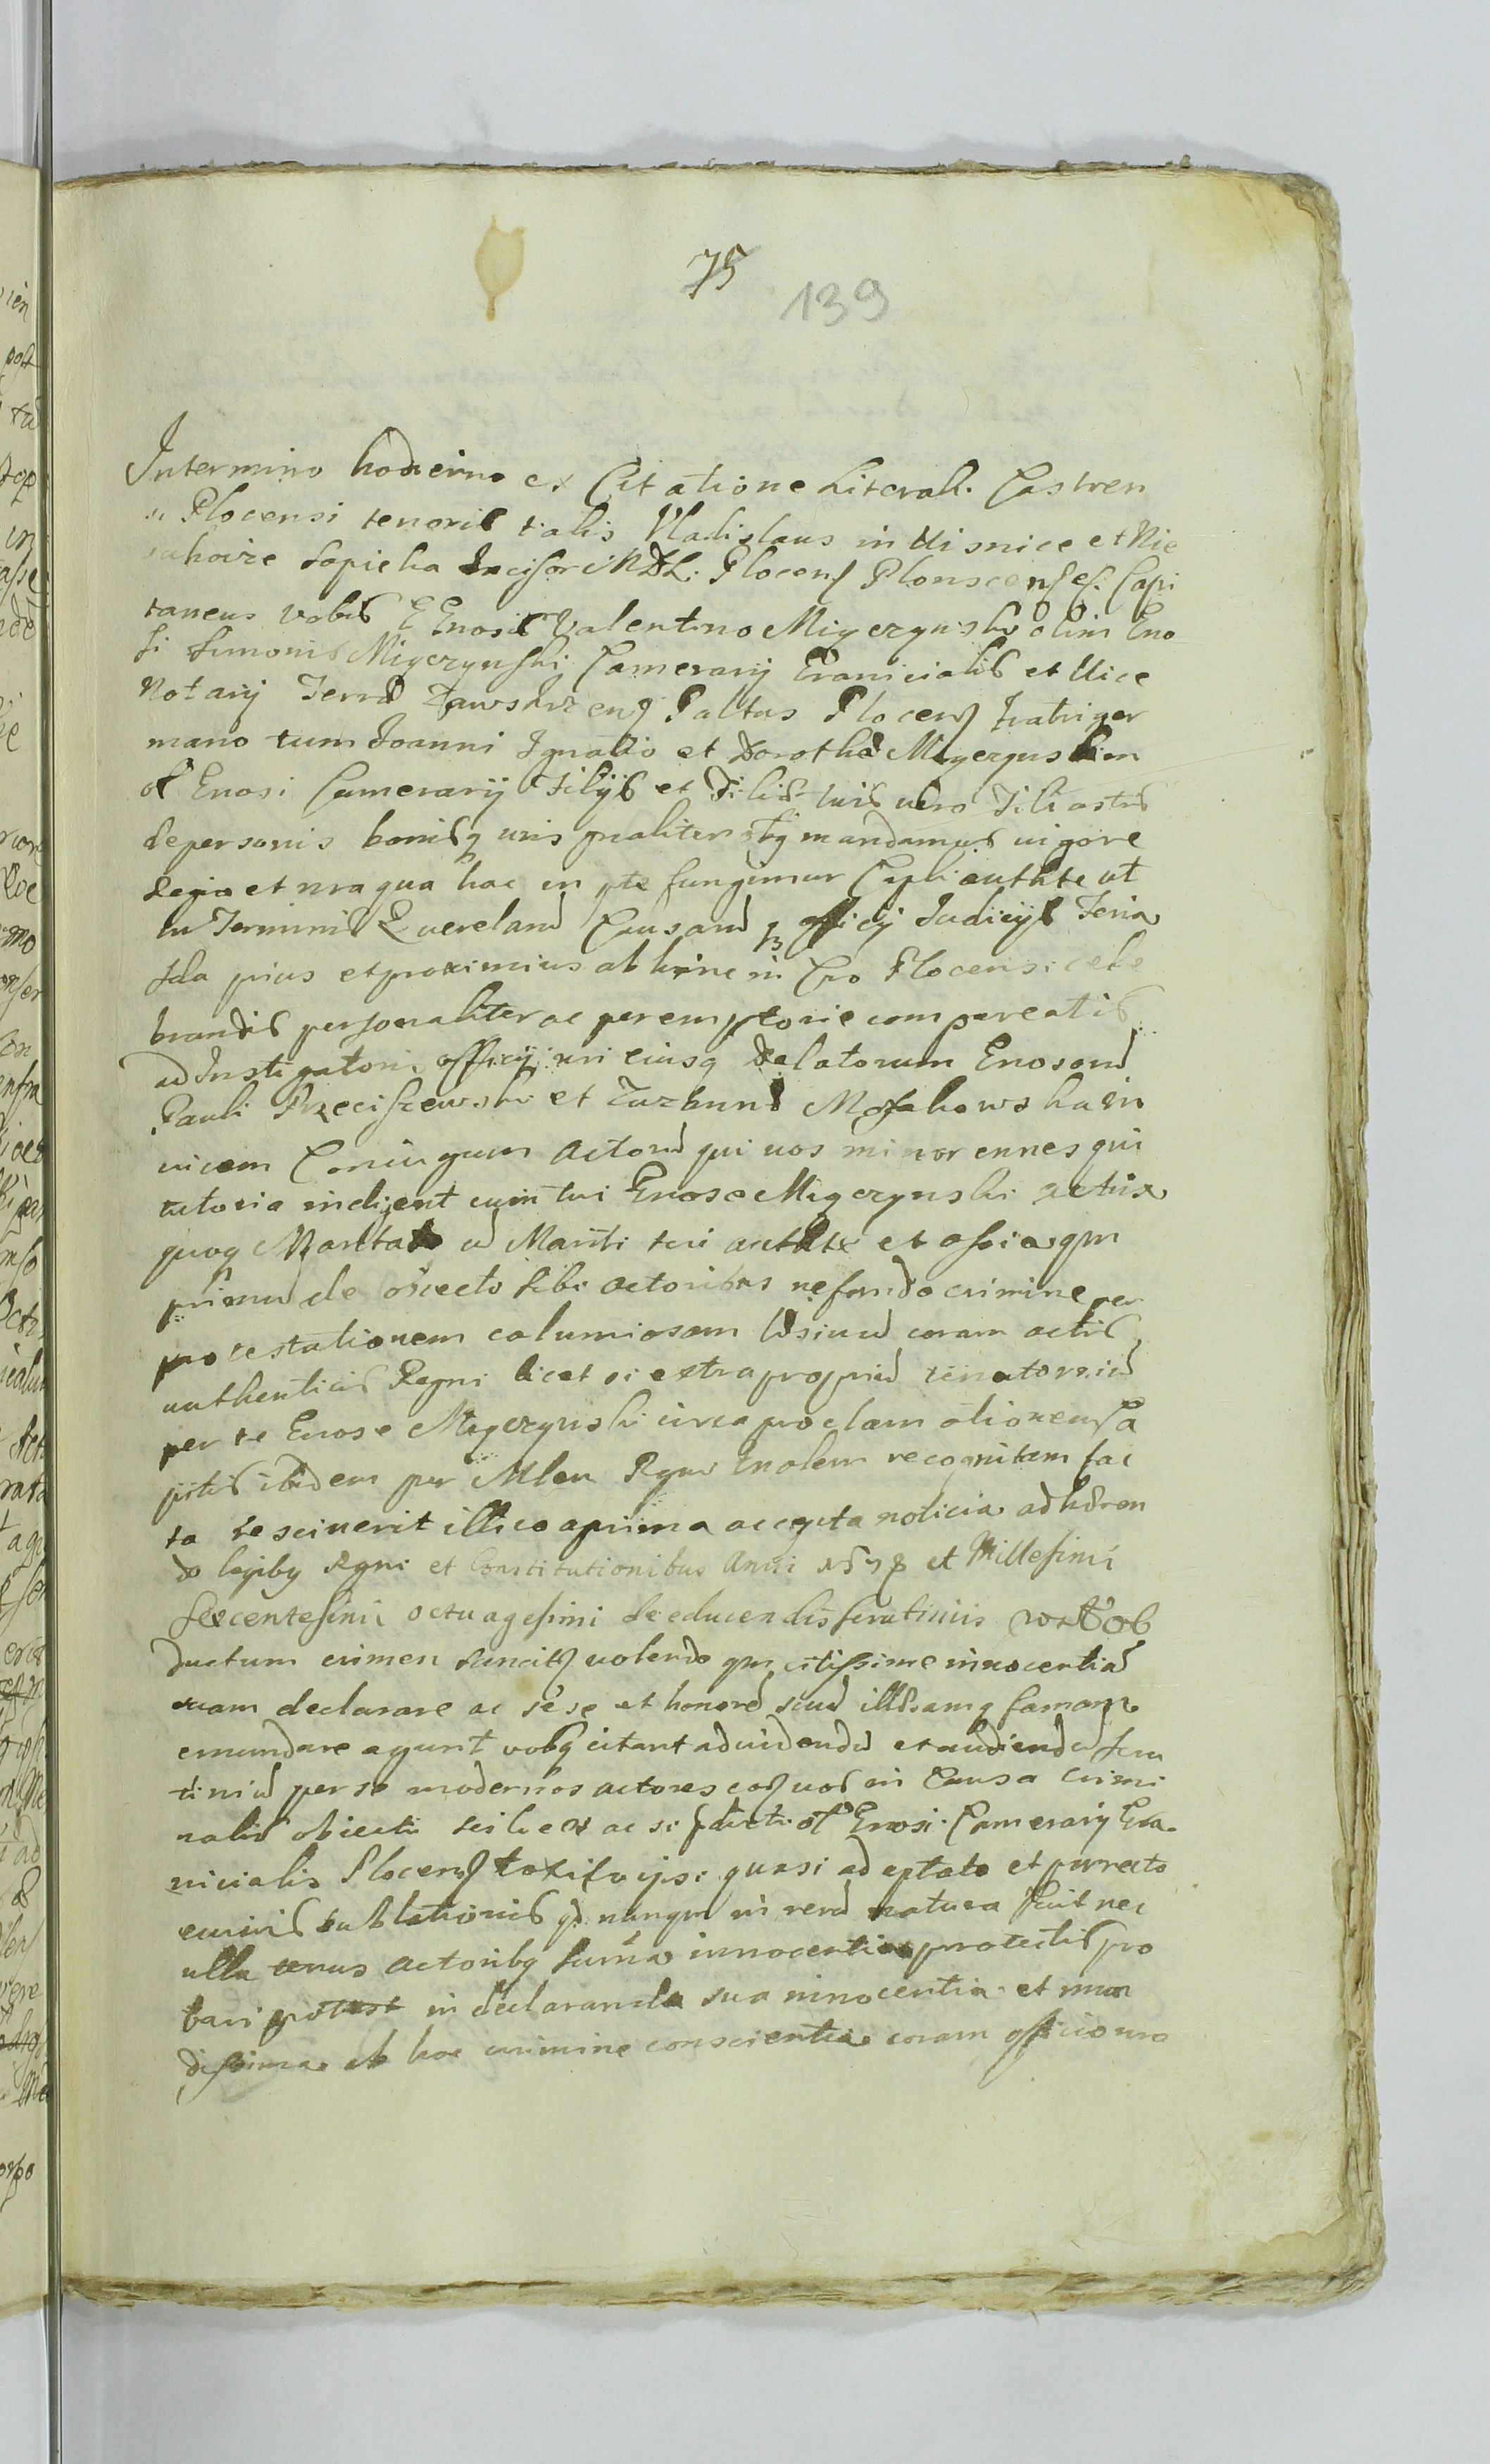 75
139
Intermino hodierno ex Citatione Literali Castren
si Plocensi tenoris talis Vladislaus in Visnice et Nie
Sapieha Incisor MDL. Plocens Plonscens Capi
taneus vobis GGnosis Valentino Migczynski olim Gno
si Simonis Migczynski Camerarij Granicialis et Vice
Notarij Terrae Zawskrzens Paltus Plocens fratri ger
mano tum Joanni Ignatio et Dorothae Migczynskim
ol Gnosi Camerarij Filijs et Filiae tuis vero Filiastris
de personis bonisq vris gnaliter mandamus vigore
Regia et nra qua hac in pte fungimur Capli authte ut
in Terminis Querelarum Causarum q officij Judicijs Feria
2da prius et proximius ab hinc in Cro Plocensi cele
brandis personaliter ac peremptorie compareatis
ad Instigatoris officij nri eiusq delatorum Gnosorum
Pauli Przeciszewski et Mosakowska in
vicem Coniugum Actorum qui vos minorennes qui
tutoria indigent cum tui Gnose Migczynski actrix
quoq Maritata ad Mariti sui authte et assia qm
primum de obiecto sibi actoribus nefando crimine per
protestationem calumiosam coram actis
authenticis Regni licet si extra proprium
per te Gnose Migczynski circa proclamationem Ca
pitis ibidem per Mlem Rgnu recognitam fac
ta resciverit illico a prima accepta noticia adhaeren
do legibq Rgni et Constitutionibus Anni 1578 et Millesimi
sexcentesimi octuagesimi de educendis scrutiniis ob
ductum crimen volendo qm citissime innocentiam
suam declarare ac sese et honorem suum illaesamq famam
emundare agunt vobq citant ad videndum et audiendum scru
tinium per se modernos actores vos in Causa crimi
nalis obiecti scilicet ac si fracti ol Gnosi Camerarij Gra
nicialis Plocens ipsi quasi adeptato et porrecto
eiusvis sublationis qd nunqm in rerum natura fuit nec
ulla tenus actoribq summa innocentia protectis pro
bari potest in declaranda sua innocentia et mun
dissima ab hoc crimine conscientia coram officio nro